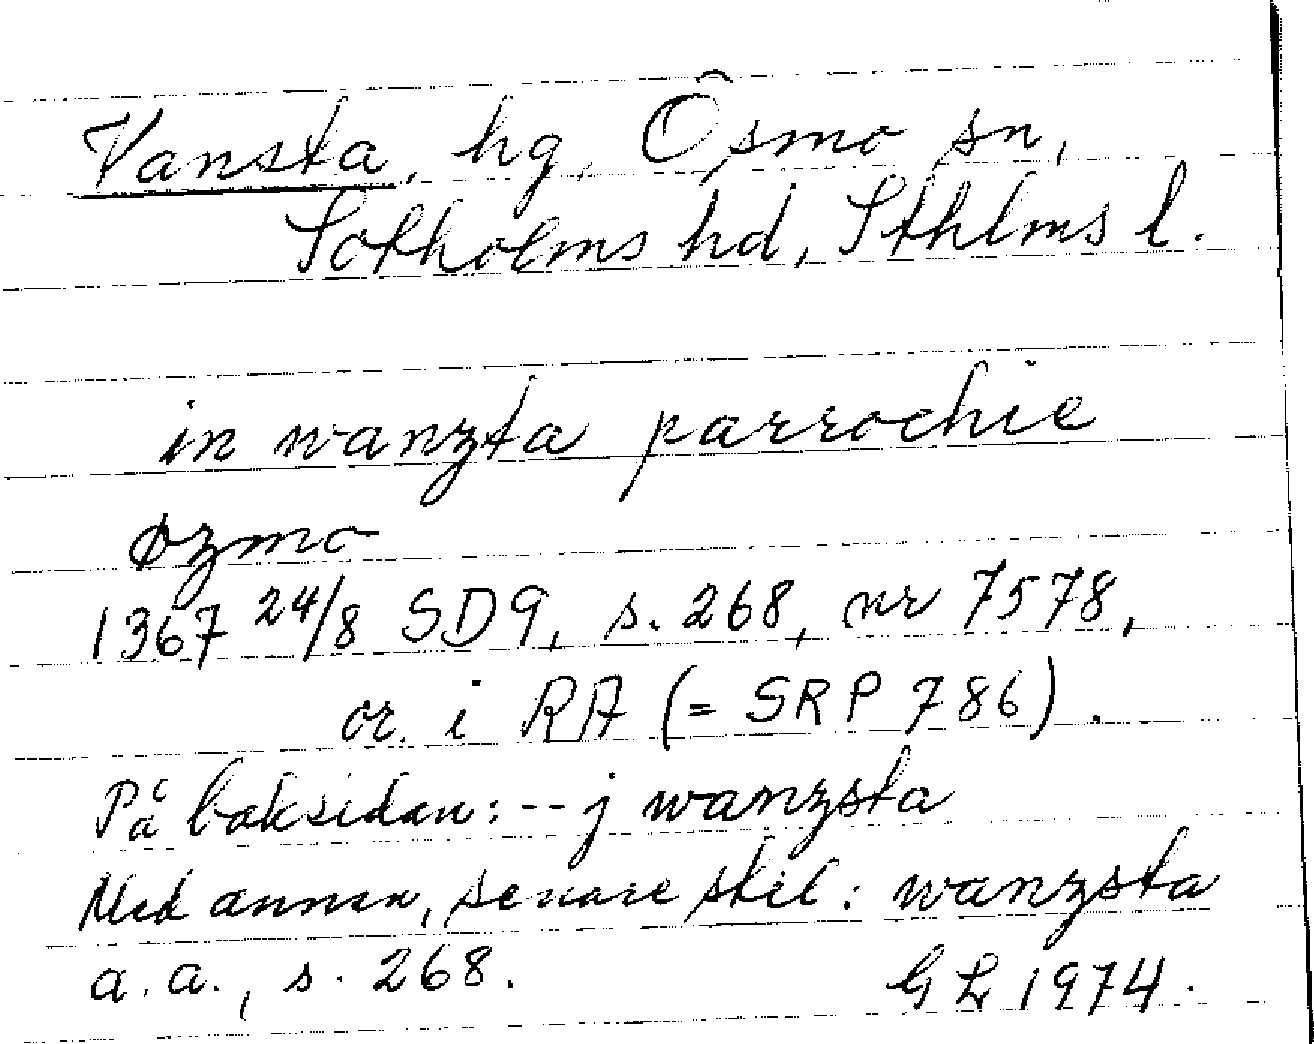 Vansta, hg, Ösmo sn,
Sotholms hd, Sthlms l.
in wanzta parrochie
øzmo
1367 24/8 SD9, s. 268, nr 7578,
or. i RA (= SRP 786).
På baksidan: -- j wanzsta
Med annan, senare stil: wanzsta
a.a., s. 268. GL 1974.